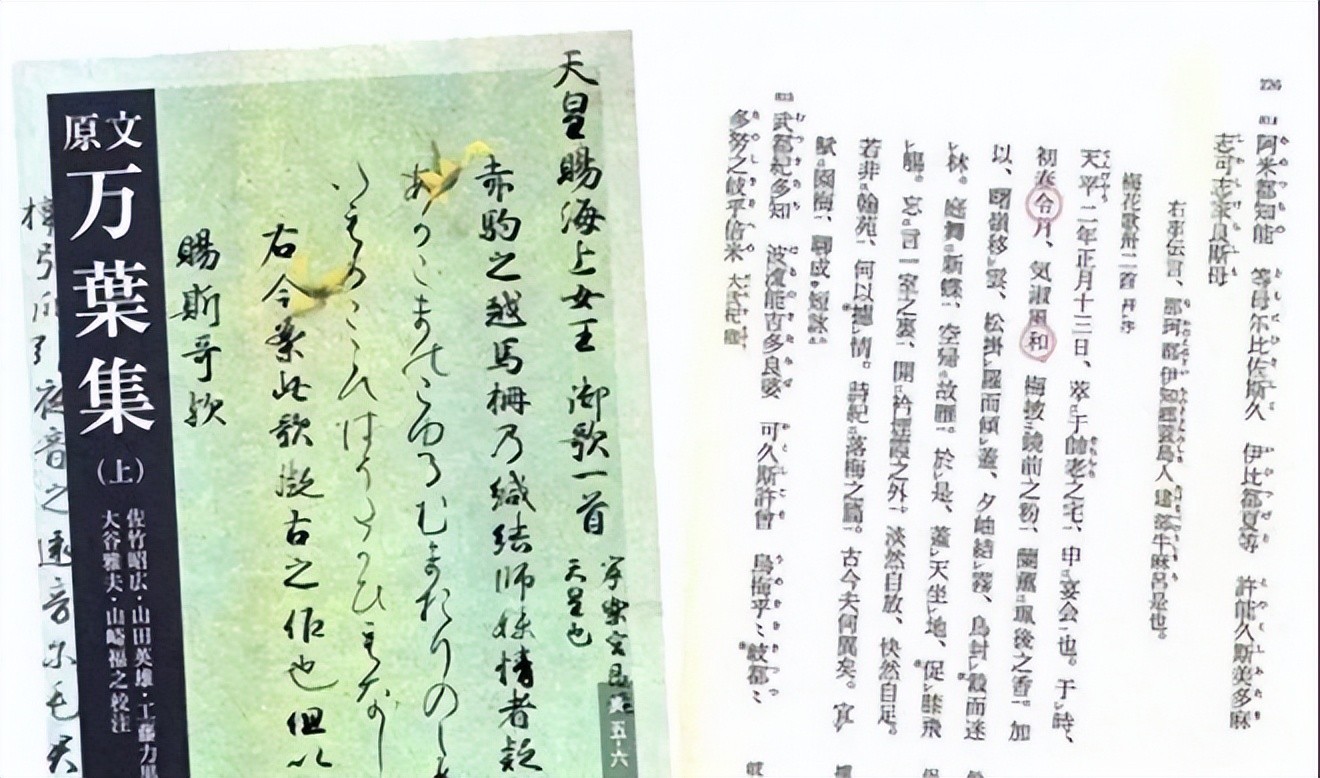 原文
万葉集
(上)
佐竹昭広・山田英雄・工藤力
大谷雅夫・山崎福之校注
天皇賜海上女王御歌一首
天皇也
赤駒之越馬柵乃緘結師妹情者疑
あかこまのこゆるむまおりのし
いものこゝろはうたかひもなし
右今案此歌擬古之作也但以
賜斯哥歟
梓弓爪引夜音之遠音尓毛
五・六
226
阿米都知能 等母尓比佐斯久 伊比都夏等 許能久斯美多麻
志可志家良斯母
右事伝言、那珂郡伊知郷蓑島人建部牛麻呂是也。
梅花歌卅二首 并序
天平二年正月十三日、萃于帥老之宅、申宴会也。于時、
初春令月、気淑風和 梅披鏡前之粉、蘭薫珮後之香。加
以、曙嶺移雲、松掛羅而傾蓋、夕岫結霧、鳥封縠而迷
林。庭舞新蝶、空帰故雁。於是、蓋天坐地、促膝飛
觴。忘言一室之裏、開衿煙霞之外、淡然自放、快然自足。
若非翰苑、何以攄情。時紀落梅之篇。古今夫何異矣。宜
賦園梅、聊成短詠。
武都紀多知 波流能吉多良婆 可久斯許曽 烏梅乎々岐都々
多努之岐乎倍米 大弐紀卿